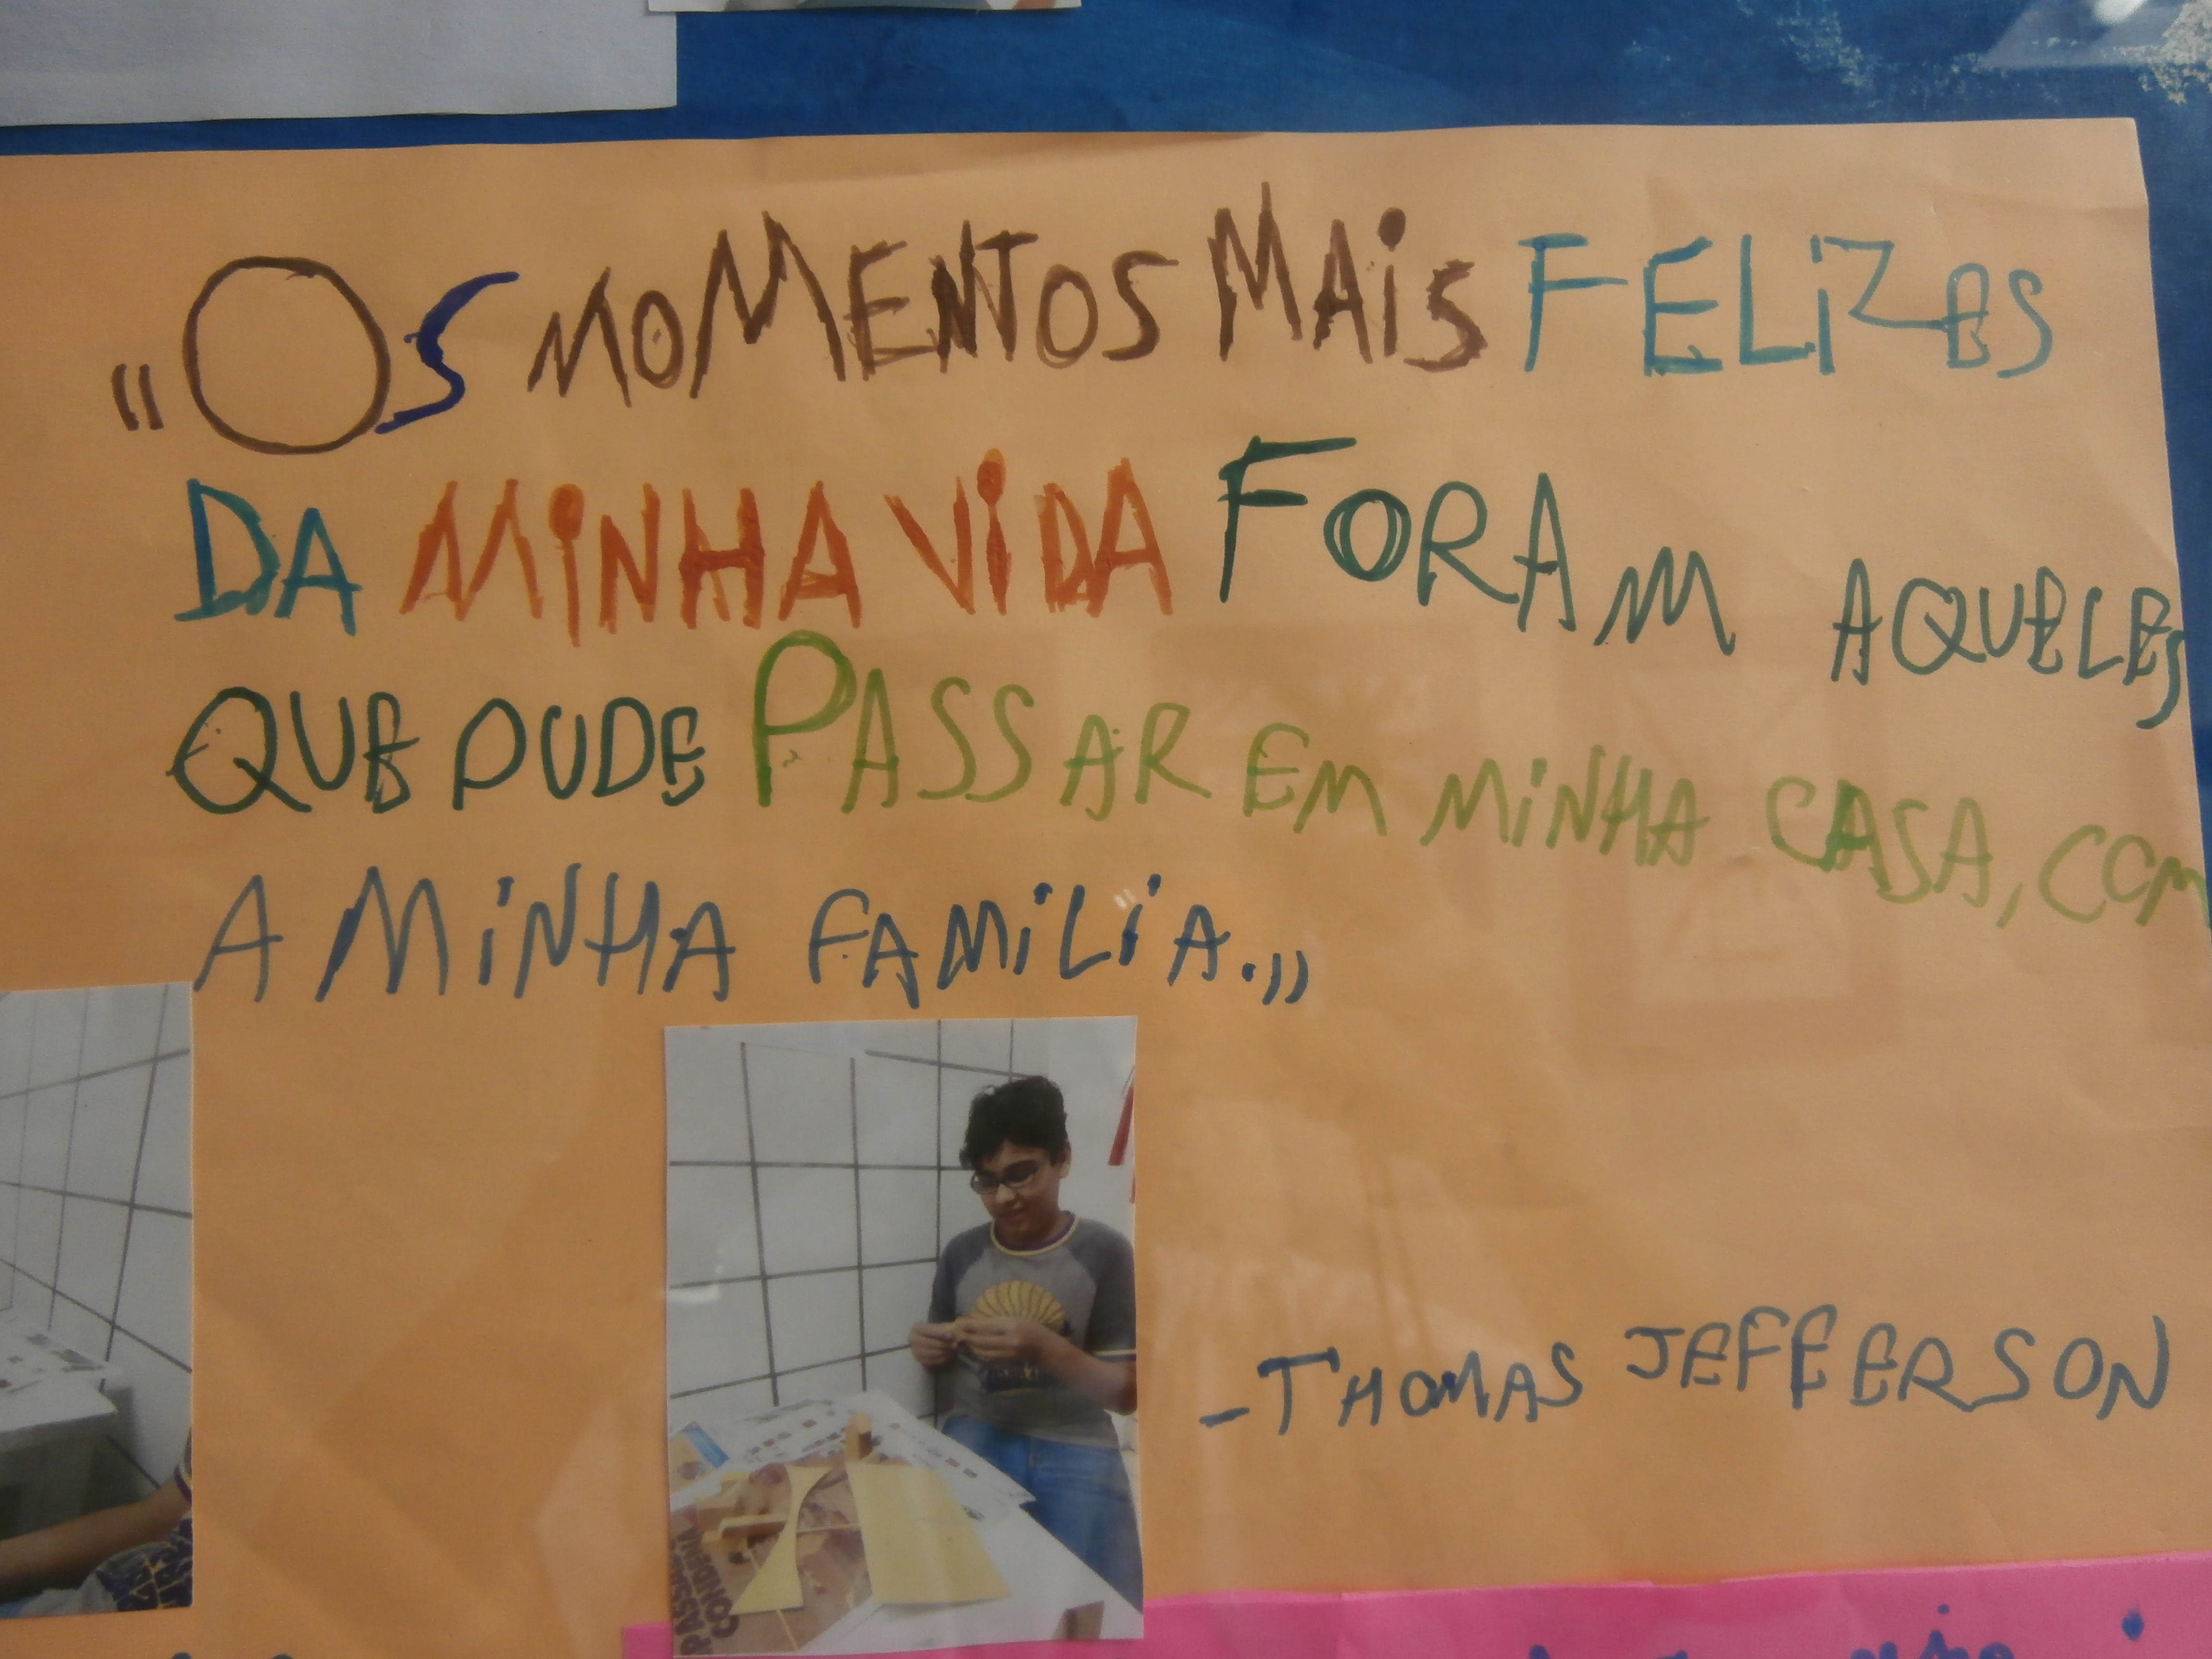 "Os MOMENTOS MAiS FELiZES
DA MiNHA ViDA FORAM AQUELES
QUE PUDE PASSAR EM MiNHA CASA, COM
A MiNHA FAMiLiA."
-THOMAS JEFFERSON